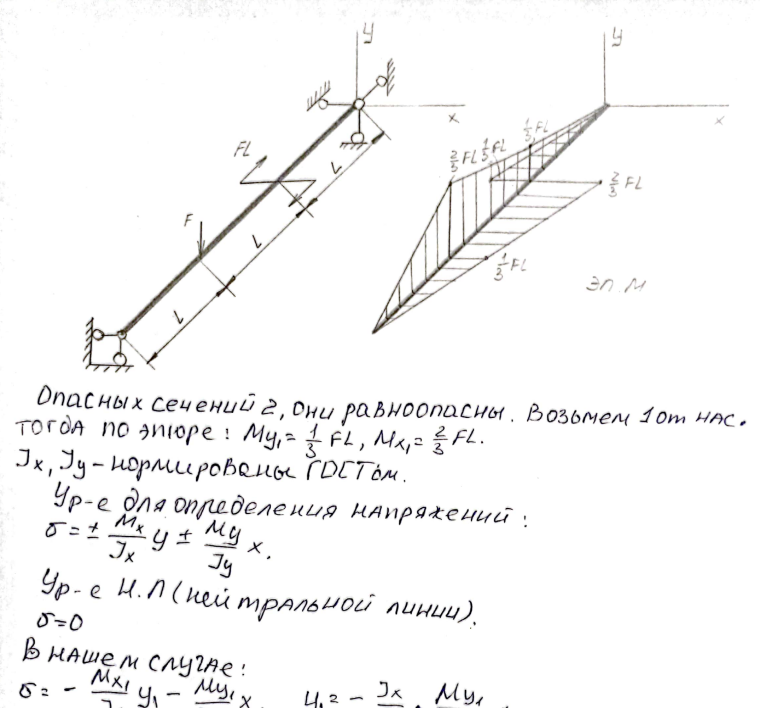 y
x
FL
F
L
L
L
y
x
2/3 FL 1/3 FL
1/3 FL
2/3 FL
1/3 FL
ЭП. М
Опасных сечений 2, они равноопасны. Возьмем 1 от нас.
тогда по эпюре: My₁ = 1/3 FL, Mx₁ = 2/3 FL.
Jx, Jy - нормированы ГОСТом.
Ур-е для определения напряжений:
σ = ± Mx/Jx y ± My/Jy x.
Ур-е Н.Л (нейтральной линии).
σ=0
В нашем случае:
σ = - Mx₁ y₁ - My₁ x y₁ = - Jx · My₁